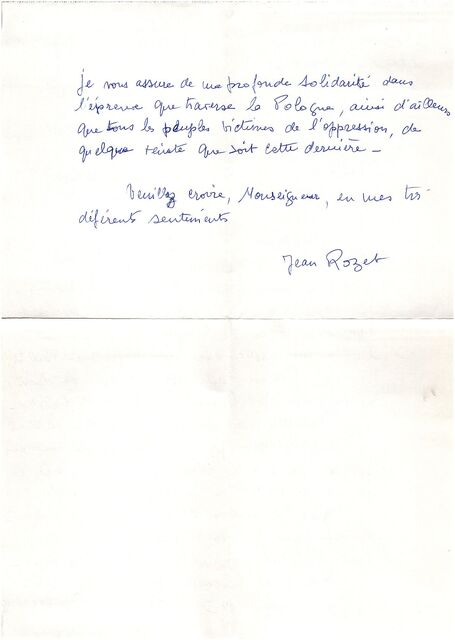 je vous assure de ma profonde solidarité dans
l'épreuve que traverse la Pologne, ainsi d'ailleurs
que tous les peuples victimes de l'oppression, de
quelque que soit cette dernière -
Veuillez croire, Monseigneur, en mes très
déférents sentiments
Jean Rozet